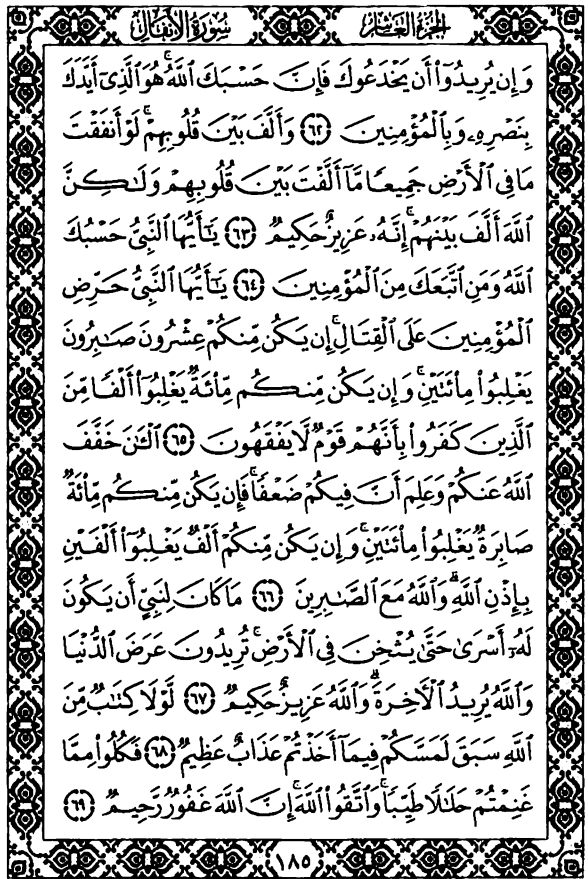 سُورَةُ الأَنفَالِ الجُزْءُ العَاشِرُ
وَإِن يُرِيدُوٓا۟ أَن يَخْدَعُوكَ فَإِنَّ حَسْبَكَ ٱللَّهُ ۚ هُوَ ٱلَّذِىٓ أَيَّدَكَ
بِنَصْرِهِۦ وَبِٱلْمُؤْمِنِينَ ٦٢ وَأَلَّفَ بَيْنَ قُلُوبِهِمْ ۚ لَوْ أَنفَقْتَ
مَا فِى ٱلْأَرْضِ جَمِيعًا مَّآ أَلَّفْتَ بَيْنَ قُلُوبِهِمْ وَلَٰكِنَّ
ٱللَّهَ أَلَّفَ بَيْنَهُمْ ۚ إِنَّهُۥ عَزِيزٌ حَكِيمٌ ٦٣ يَٰٓأَيُّهَا ٱلنَّبِىُّ حَسْبُكَ
ٱللَّهُ وَمَنِ ٱتَّبَعَكَ مِنَ ٱلْمُؤْمِنِينَ ٦٤ يَٰٓأَيُّهَا ٱلنَّبِىُّ حَرِّضِ
ٱلْمُؤْمِنِينَ عَلَى ٱلْقِتَالِ ۚ إِن يَكُن مِّنكُمْ عِشْرُونَ صَٰبِرُونَ
يَغْلِبُوا۟ مِا۟ئَتَيْنِ ۚ وَإِن يَكُن مِّنكُم مِّا۟ئَةٌ يَغْلِبُوٓا۟ أَلْفًا مِّنَ
ٱلَّذِينَ كَفَرُوا۟ بِأَنَّهُمْ قَوْمٌ لَّا يَفْقَهُونَ ٦٥ ٱلْـَٰٔنَ خَفَّفَ
ٱللَّهُ عَنكُمْ وَعَلِمَ أَنَّ فِيكُمْ ضَعْفًا ۚ فَإِن يَكُن مِّنكُم مِّا۟ئَةٌ
صَابِرَةٌ يَغْلِبُوا۟ مِا۟ئَتَيْنِ ۚ وَإِن يَكُن مِّنكُمْ أَلْفٌ يَغْلِبُوٓا۟ أَلْفَيْنِ
بِإِذْنِ ٱللَّهِ ۗ وَٱللَّهُ مَعَ ٱلصَّٰبِرِينَ ٦٦ مَا كَانَ لِنَبِىٍّ أَن يَكُونَ
لَهُۥٓ أَسْرَىٰ حَتَّىٰ يُثْخِنَ فِى ٱلْأَرْضِ ۚ تُرِيدُونَ عَرَضَ ٱلدُّنْيَا
وَٱللَّهُ يُرِيدُ ٱلْءَاخِرَةَ ۗ وَٱللَّهُ عَزِيزٌ حَكِيمٌ ٦٧ لَّوْلَا كِتَٰبٌ مِّنَ
ٱللَّهِ سَبَقَ لَمَسَّكُمْ فِيمَآ أَخَذْتُمْ عَذَابٌ عَظِيمٌ ٦٨ فَكُلُوا۟ مِمَّا
غَنِمْتُمْ حَلَٰلًا طَيِّبًا ۚ وَٱتَّقُوا۟ ٱللَّهَ ۚ إِنَّ ٱللَّهَ غَفُورٌ رَّحِيمٌ ٦٩
١٨٥